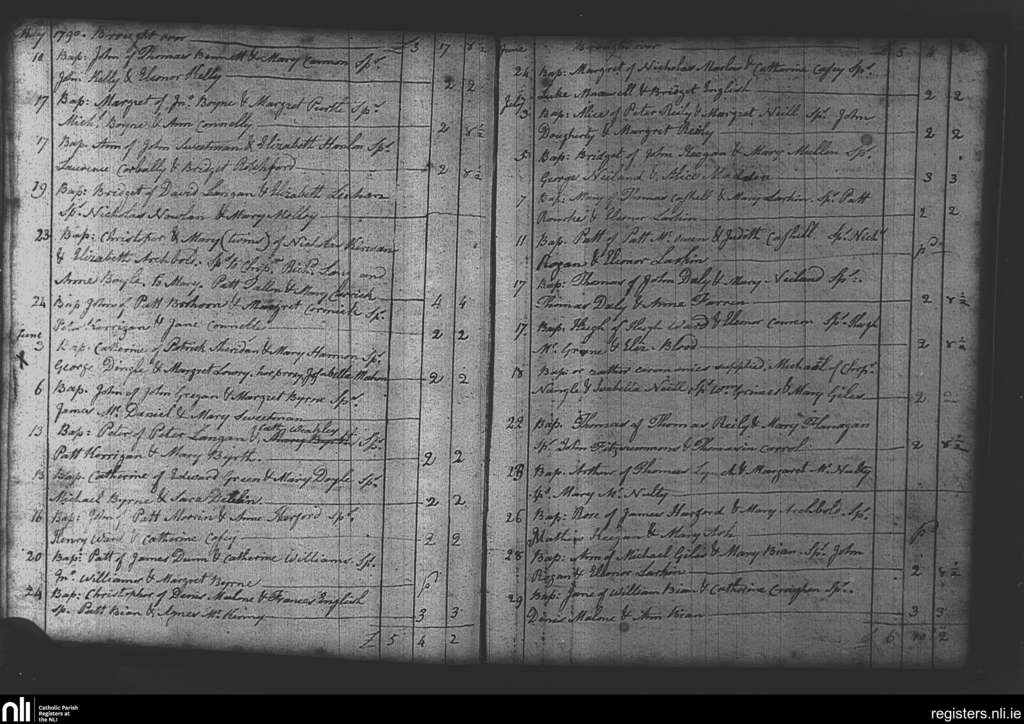 May 1790. Brought over £ 3 17 8½
10 Bap: John of Thomas Bennett & Mary Cannon Sprs.
John Kelly & Elenor Kelly 2 2
17 Bap: Margret of Jno. Boyne & Margret Sprs.
Michl. Boyne & Ann Connelly 2 8½
17 Bap: Ann of John Sweetman & Elizabeth Hanlon Sprs.
Laurence Corbally & Bridget Rochford 2 8½
19 Bap: Bridget of David Langan & Elizabeth
Sprs. Nicholas Nowlan & Mary Molloy
23 Bap: Christopher & Mary (twins) of Nicholas Kirwan
& Elizabeth Archbold. Sprs. to Chrisr. Richd. Long and
Anne Boyle, to Mary. Patt Fallon & Mary 4 4
24 Bap: John of Patt & Margret Cormick Sprs.
Peter Kerrigan & Jane Connell 2 2
June
3 Bap: Catherine of Patrick Sheridan & Mary Harmon Sprs.
George Dingle & Margret Lowry, her proxy Isabella Mahon 2 2
6 Bap: John of John Gregan & Margret Byrne Sprs.
James Mc. Daniel & Mary Sweetman
13 Bap: Peter of Peter Langan & Sprs.
Patt Kerrigan & Mary Byrth 2 2
13 Bap: Catherine of Edward Green & Mary Doyle Sprs.
Michael Byrne & Sara 2 2
16 Bap: John of Patt Morrin & Anne Harford Sprs.
Henry Ward & Catherine Cafey 2 2
20 Bap: Patt of James Dunn & Catherine Williams. Sprs.
Jno. Williams & Margret Byrne pd
24 Bap: Christopher of Denis Malone & Frances English
Sprs. Patt Bian & Agnes Mc. Kenny 3 3
£ 5 4 2
June Brought over £ 5 4 2
24 Bap: Margret of Nicholas Marlow & Catherine Cafey Sprs.
Luke Maxwell & Bridget English 2 2
July
3 Bap: Alice of Peter Reily & Margret Neill Sprs. John
Dougherty & Margret Reily 2 2
5 Bap: Bridget of John Keegan & Mary Mullen Sprs.
George Neiland & Alice Madden 3 3
7 Bap: Mary of Thomas Cashell & Mary Larkin. Sprs. Patt
Rourke & Elenor Larkin 2 2
11 Bap: Patt of Patt Mc. Owen & Judith Cashell Sprs. Nichs.
Rogan & Elenor Larkin pd
17 Bap: Thomas of John Daly & Mary Neiland Sprs.
Thomas Daly & Anne Farren 2 8½
17 Bap: Hugh of Hugh Ward & Elenor Sprs. Hugh
Mc. & Eliz. Blood 2 8½
18 Bap: or rather ceremonies supplied, Michael of Chrisr.
Nangle & Isabella Neill, Sprs. Wm. Grimes & Mary Giles 2 2
22 Bap: Thomas of Thomas Reily & Mary Flanagan
Sprs. John Fitzsimmons & Thomasin Carrol 2 8½
23 Bap: Arthur of Thomas Lynch & Margaret Mc. Nulty
Sprs. Mary Mc. Nulty
26 Bap: Rose of James Harford & Mary Archbold. Sprs.
Mathew Keegan & Mary Ash pd
28 Bap: Ann of Michael Giles & Mary Bian. Sprs. John
Rogan & Elenor Larkin 2 8½
29 Bap: Jane of William Bian & Catherine Croughan Sprs.
Denis Malone & Ann Bian 3 3
£ 6 10 2
nli Catholic Parish
Registers at
the NLI
registers.nli.ie